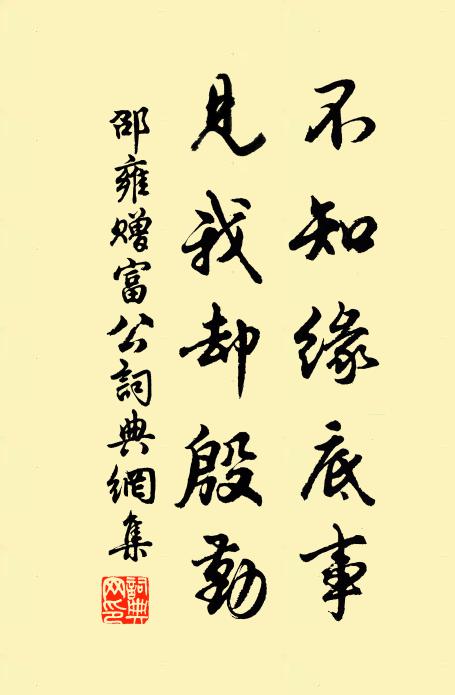 不知緣底事
見我却殷勤
邵雍贈富公詞典網集
詞典網印